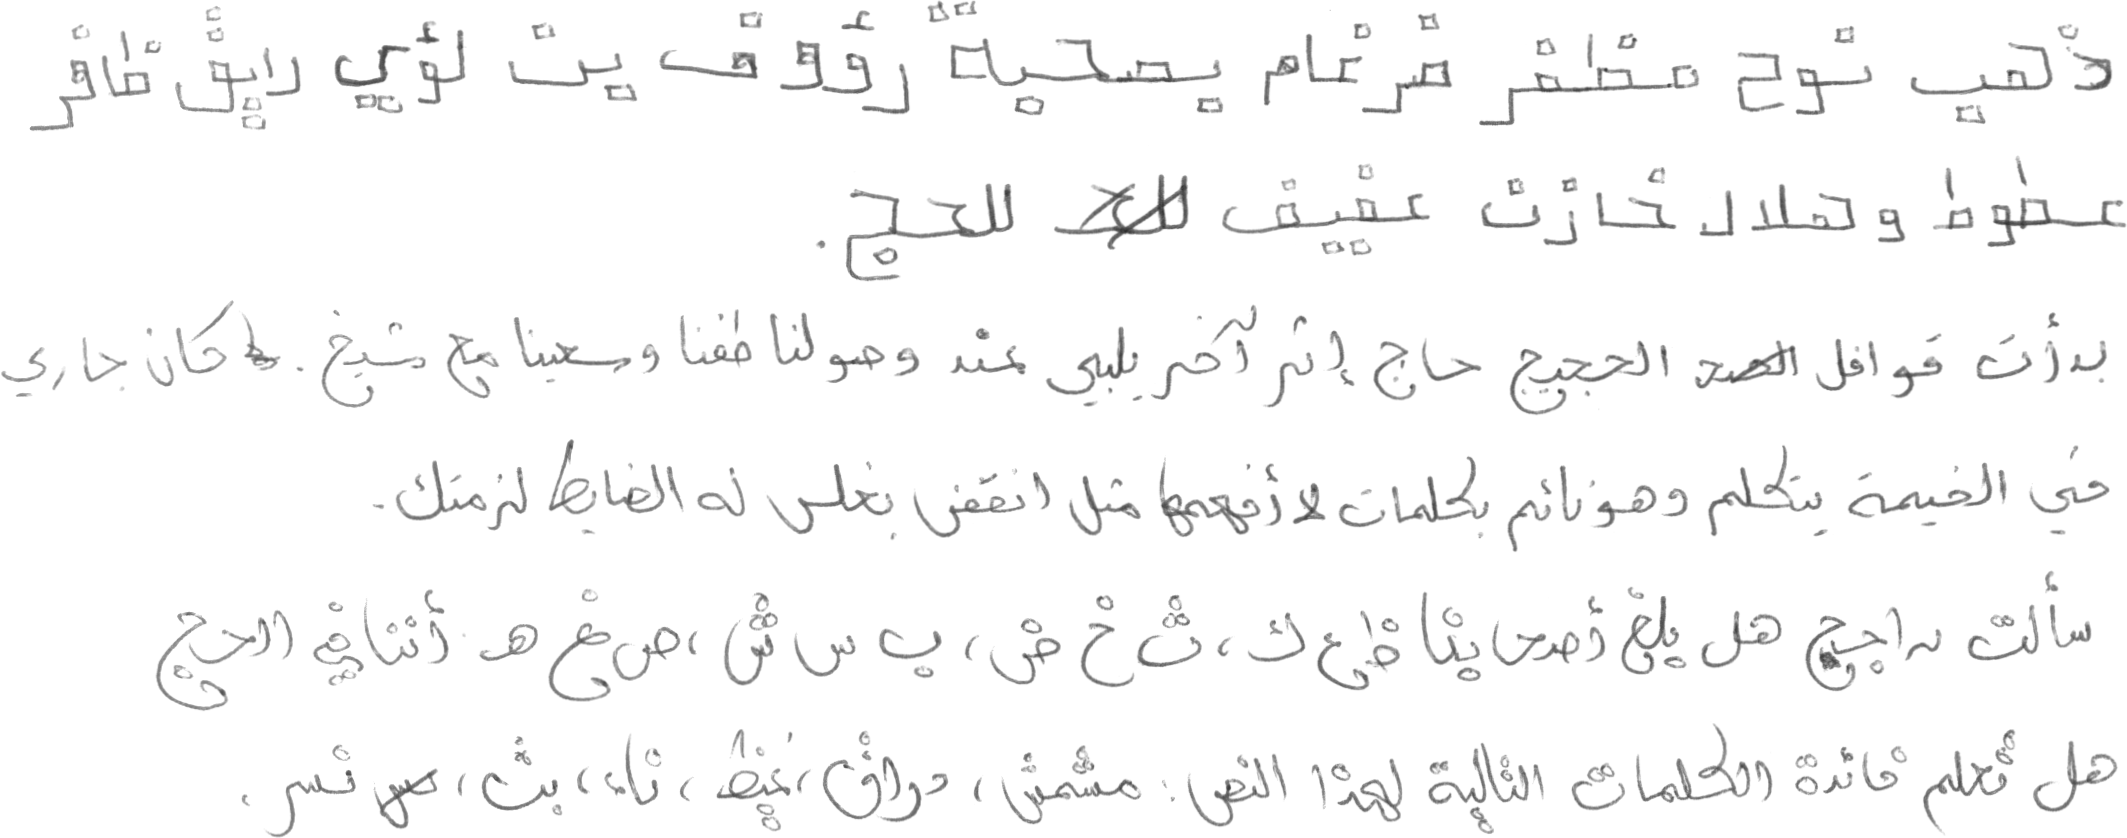 ذهب نوح مظفر ضرغام بصحبة رؤوف بن لؤي رايق ظافر
عطوط وهلال خازن عفيف للحج.
بدأت قوافل الحجيج حاج إثر آخر يلبي عند وصولنا طفنا وسعينا مع شيخ. كان جاري
في الخيمة يتكلم وهو نائم بكلمات لا أفهمها مثل انقض بغلس نه الضابط لزمتك.
سألت راجح هل بلغ أصحابنا ظ ع ك، ث خ ض، ب س ش، ص غ هـ أثناء الحج
هل تعلم فائدة الكلمات التالية لهذا النص: مشمش، دراق، غيظ، ناء، بث، نسر.